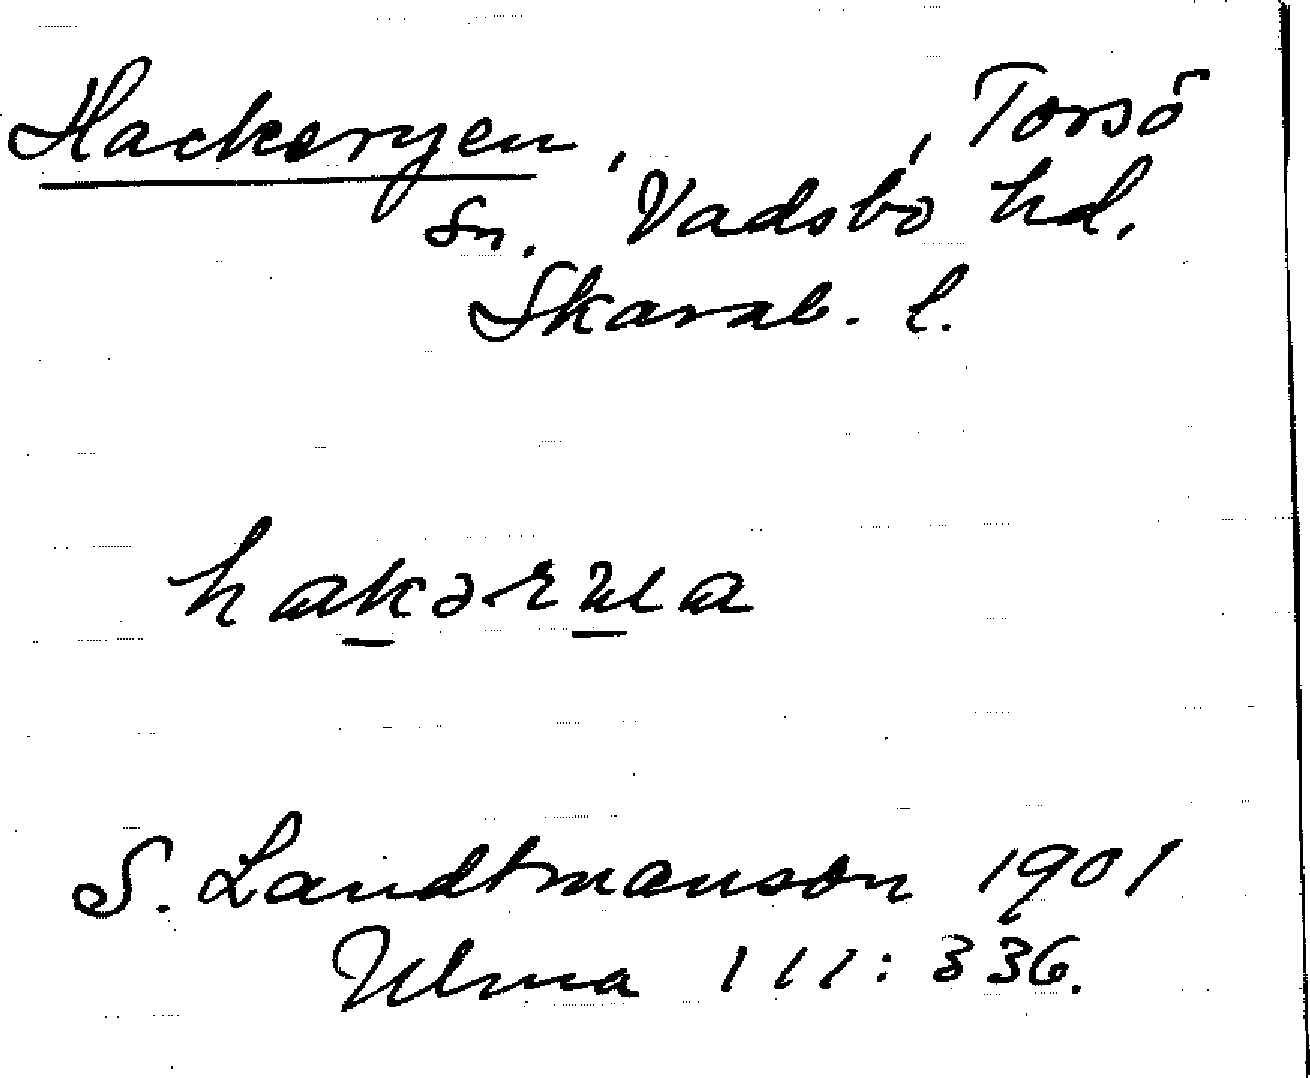 Hackeryen, , Torsö
Sn. Vadsbo hd.
Skarab. l.
S. Landtmanson 1901
Ulma 111:336.